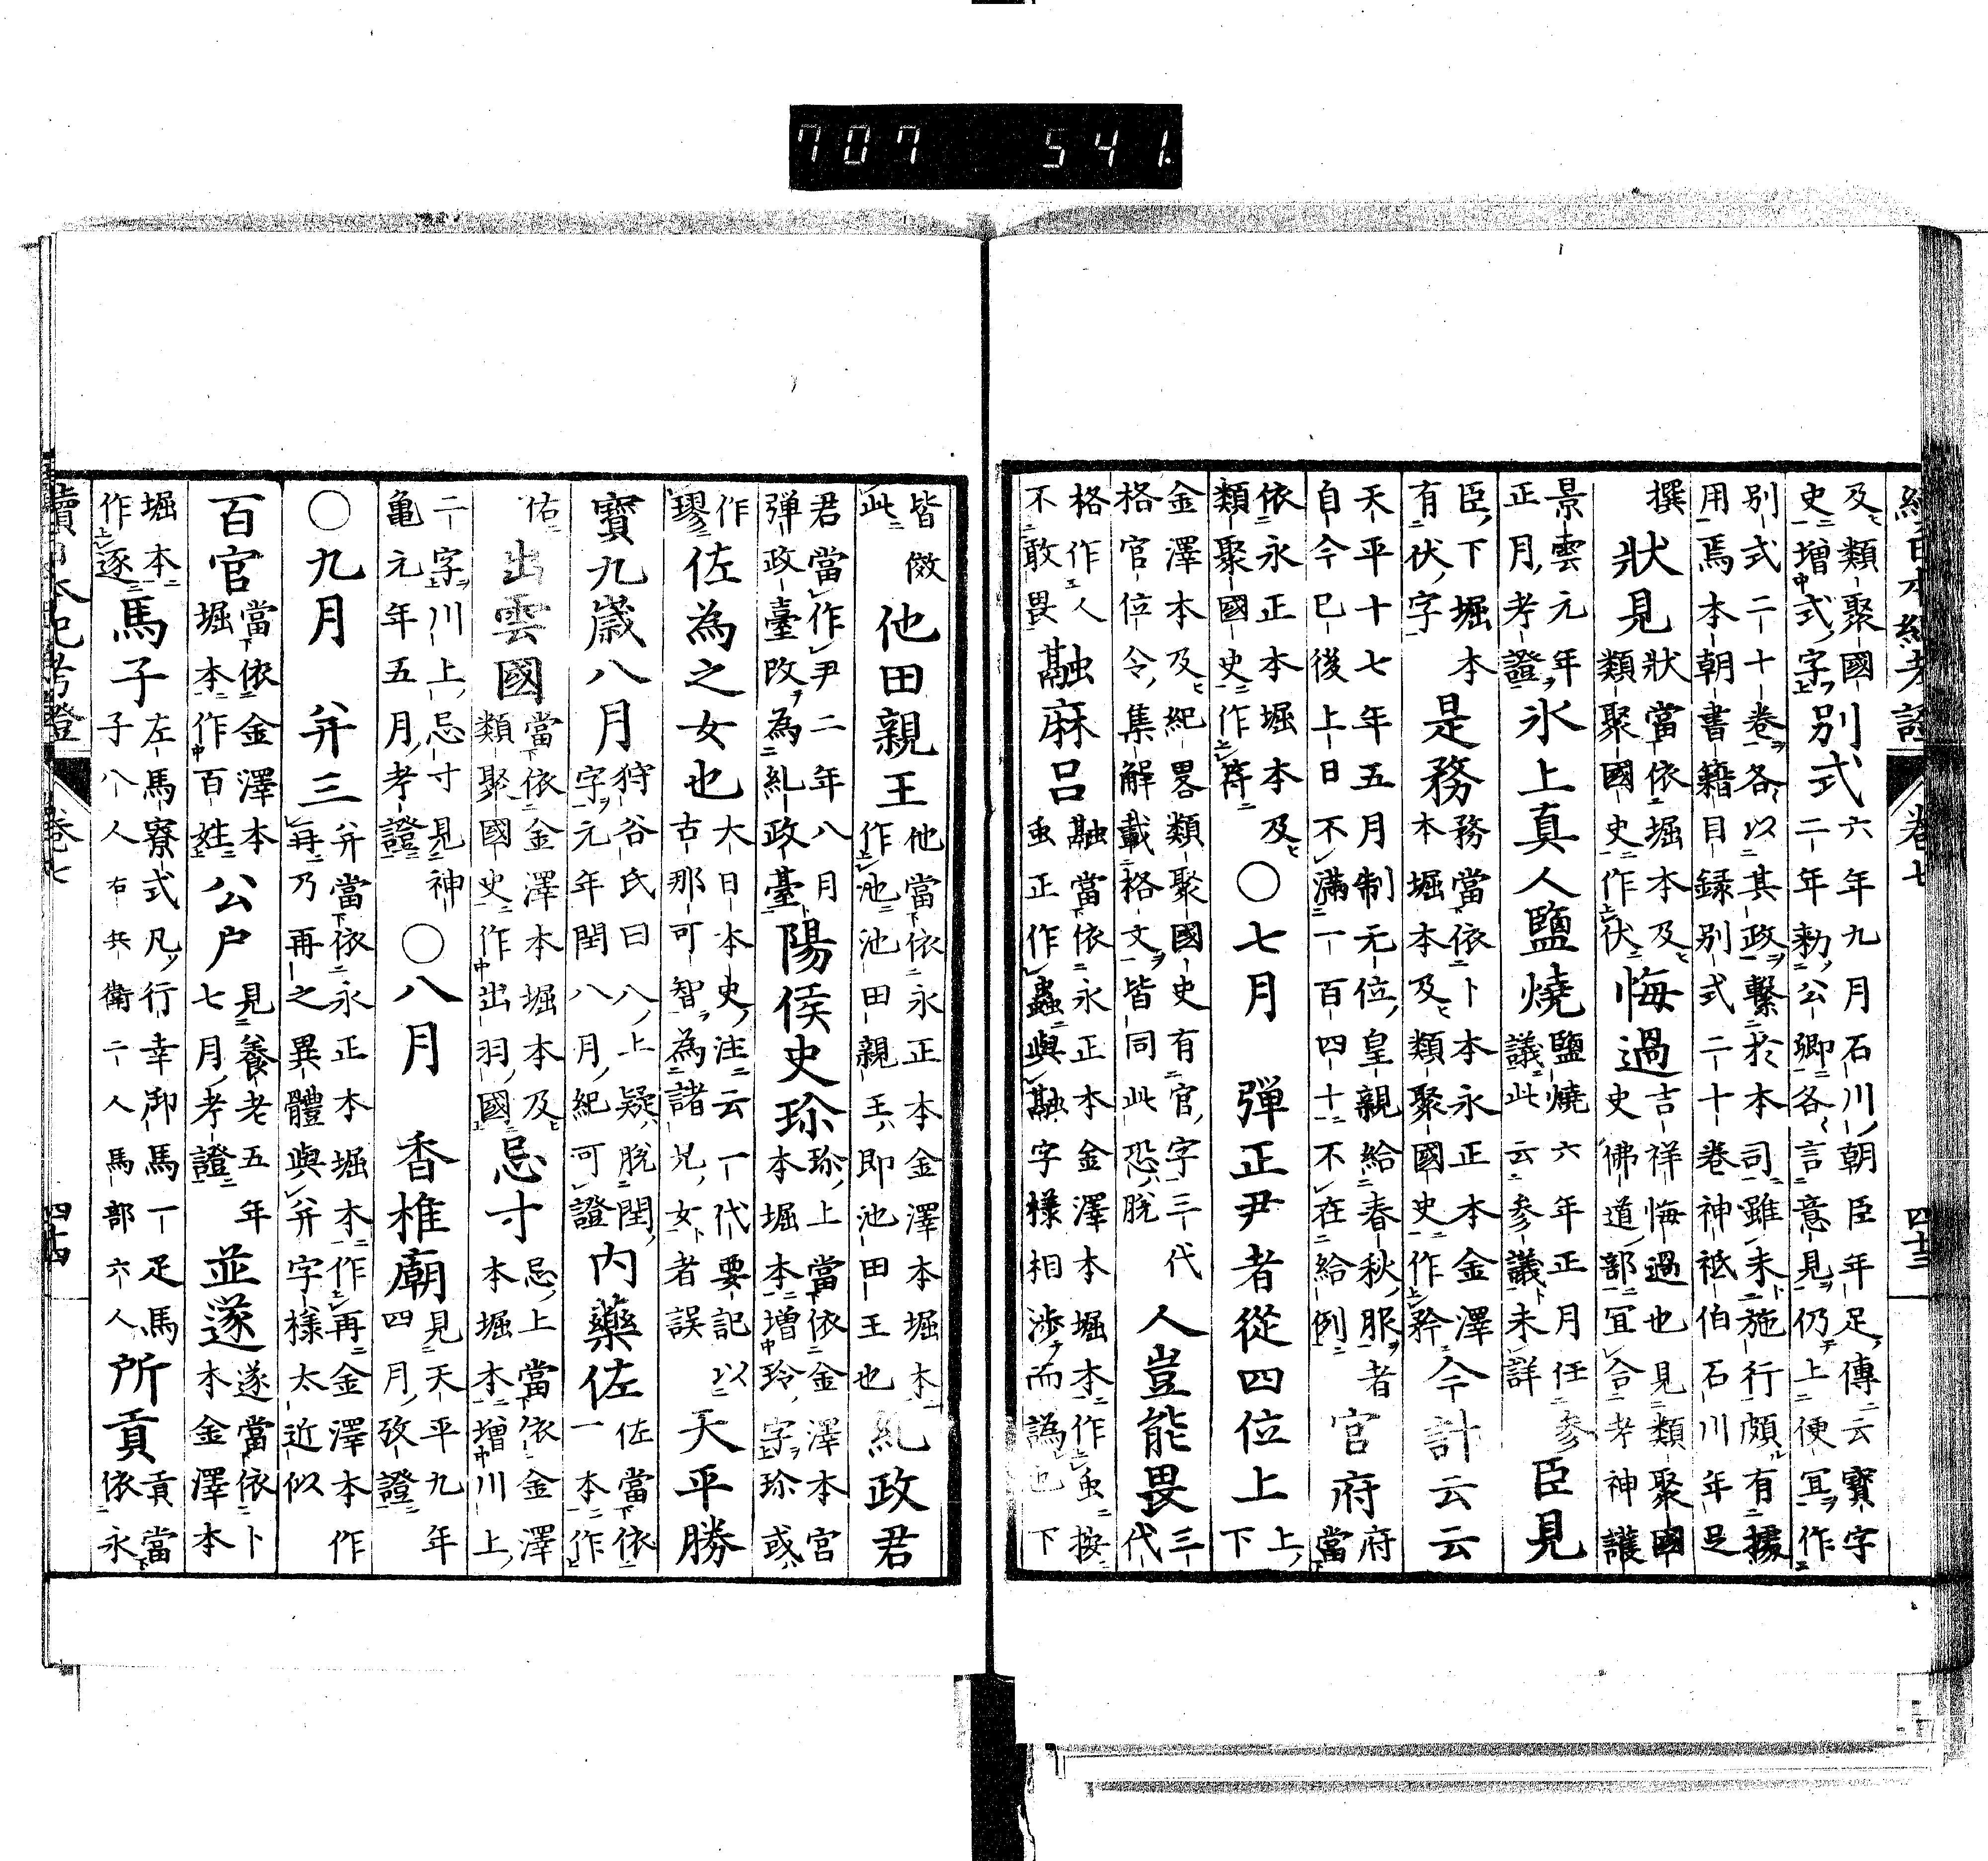 707 541
續日本紀考證 卷七 四十三
及類聚國
史增式字別式六年九月石川朝臣年足傳云寶字
二年勅公卿各言意見仍上便冝作
別式二十卷各以其政繫於本司雖未施行頗有據
用焉本朝書籍目録別式二十卷神祇伯石川年足
撰狀見狀當依堀本及
類聚國史作伏悔過吉祥悔過也見類聚國
史佛道部冝合考神護
景雲元年
正月考證氷上真人鹽燒鹽燒六年正月任參
議此云參議未詳臣見
臣下堀本
有伏字是務務當依卜本永正本金澤
本堀本及類聚國史作矜今計云云
天平十七年五月制无位皇親給春秋服者
自今已後上日不滿一百四十不在給例官府府
當
依永正本堀本及
類聚國史作符○七月 弾正尹者從四位上上
下
金澤本及紀畧類聚國史有官字三代
格官位令集解載格文皆同此恐脫人豈能畏三
代
格作人
不敢畏融麻呂融當依永正本金澤本堀本作䖝按
䖝正作蟲與融字樣相渉而譌也下
皆倣
此他田親王他當依永正本金澤本堀本
作池池田親王即池田王也糺政君
君當作尹二年八月
弾政臺改為糺政臺陽侯史珎珎上當依金澤本宮
本堀本增玲字珎或
作
璆佐為之女也大日本史注云一代要記以
古那可智為諸兄女者誤天平勝
寶九歲八月狩谷氏曰八上疑脫閏
字元年閏八月紀可證内藥佐佐當依
一本作
佑出雲國當依金澤本堀本及
類聚國史作出羽國忌寸忌上當依金澤
本堀本增川上
二字川上忌寸見神
亀元年五月考證○八月 香椎廟見天平九年
四月攷證
○九月 并三并當依永正本堀本作再金澤本作
𠕅乃再之異體與并字樣太近似
百官當依金澤本
堀本作百姓公户見養老五年
七月考證並遂遂當依卜
本金澤本
堀本
作逐馬子左馬寮式凡行幸御馬一足馬
子八人右兵衛二人馬部六人所貢貢當
依永
續日本紀考證 卷七 四十四